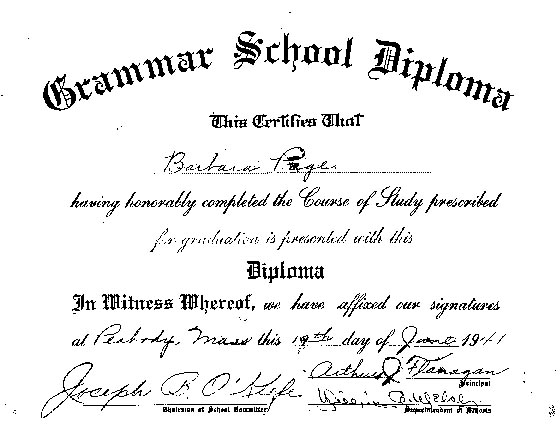 Grammar School Diploma
This Certifies That
Barbara Page
having honorably completed the Course of Study prescribed
for graduation is presented with this
Diploma
In Witness Whereof, we have affixed our signatures
at Peabody, Mass this 19th day of June 1941
Arthur J Flanagan
Principal
Joseph B. O'Keefe
Chairman of School Committee
Superintendent of Schools